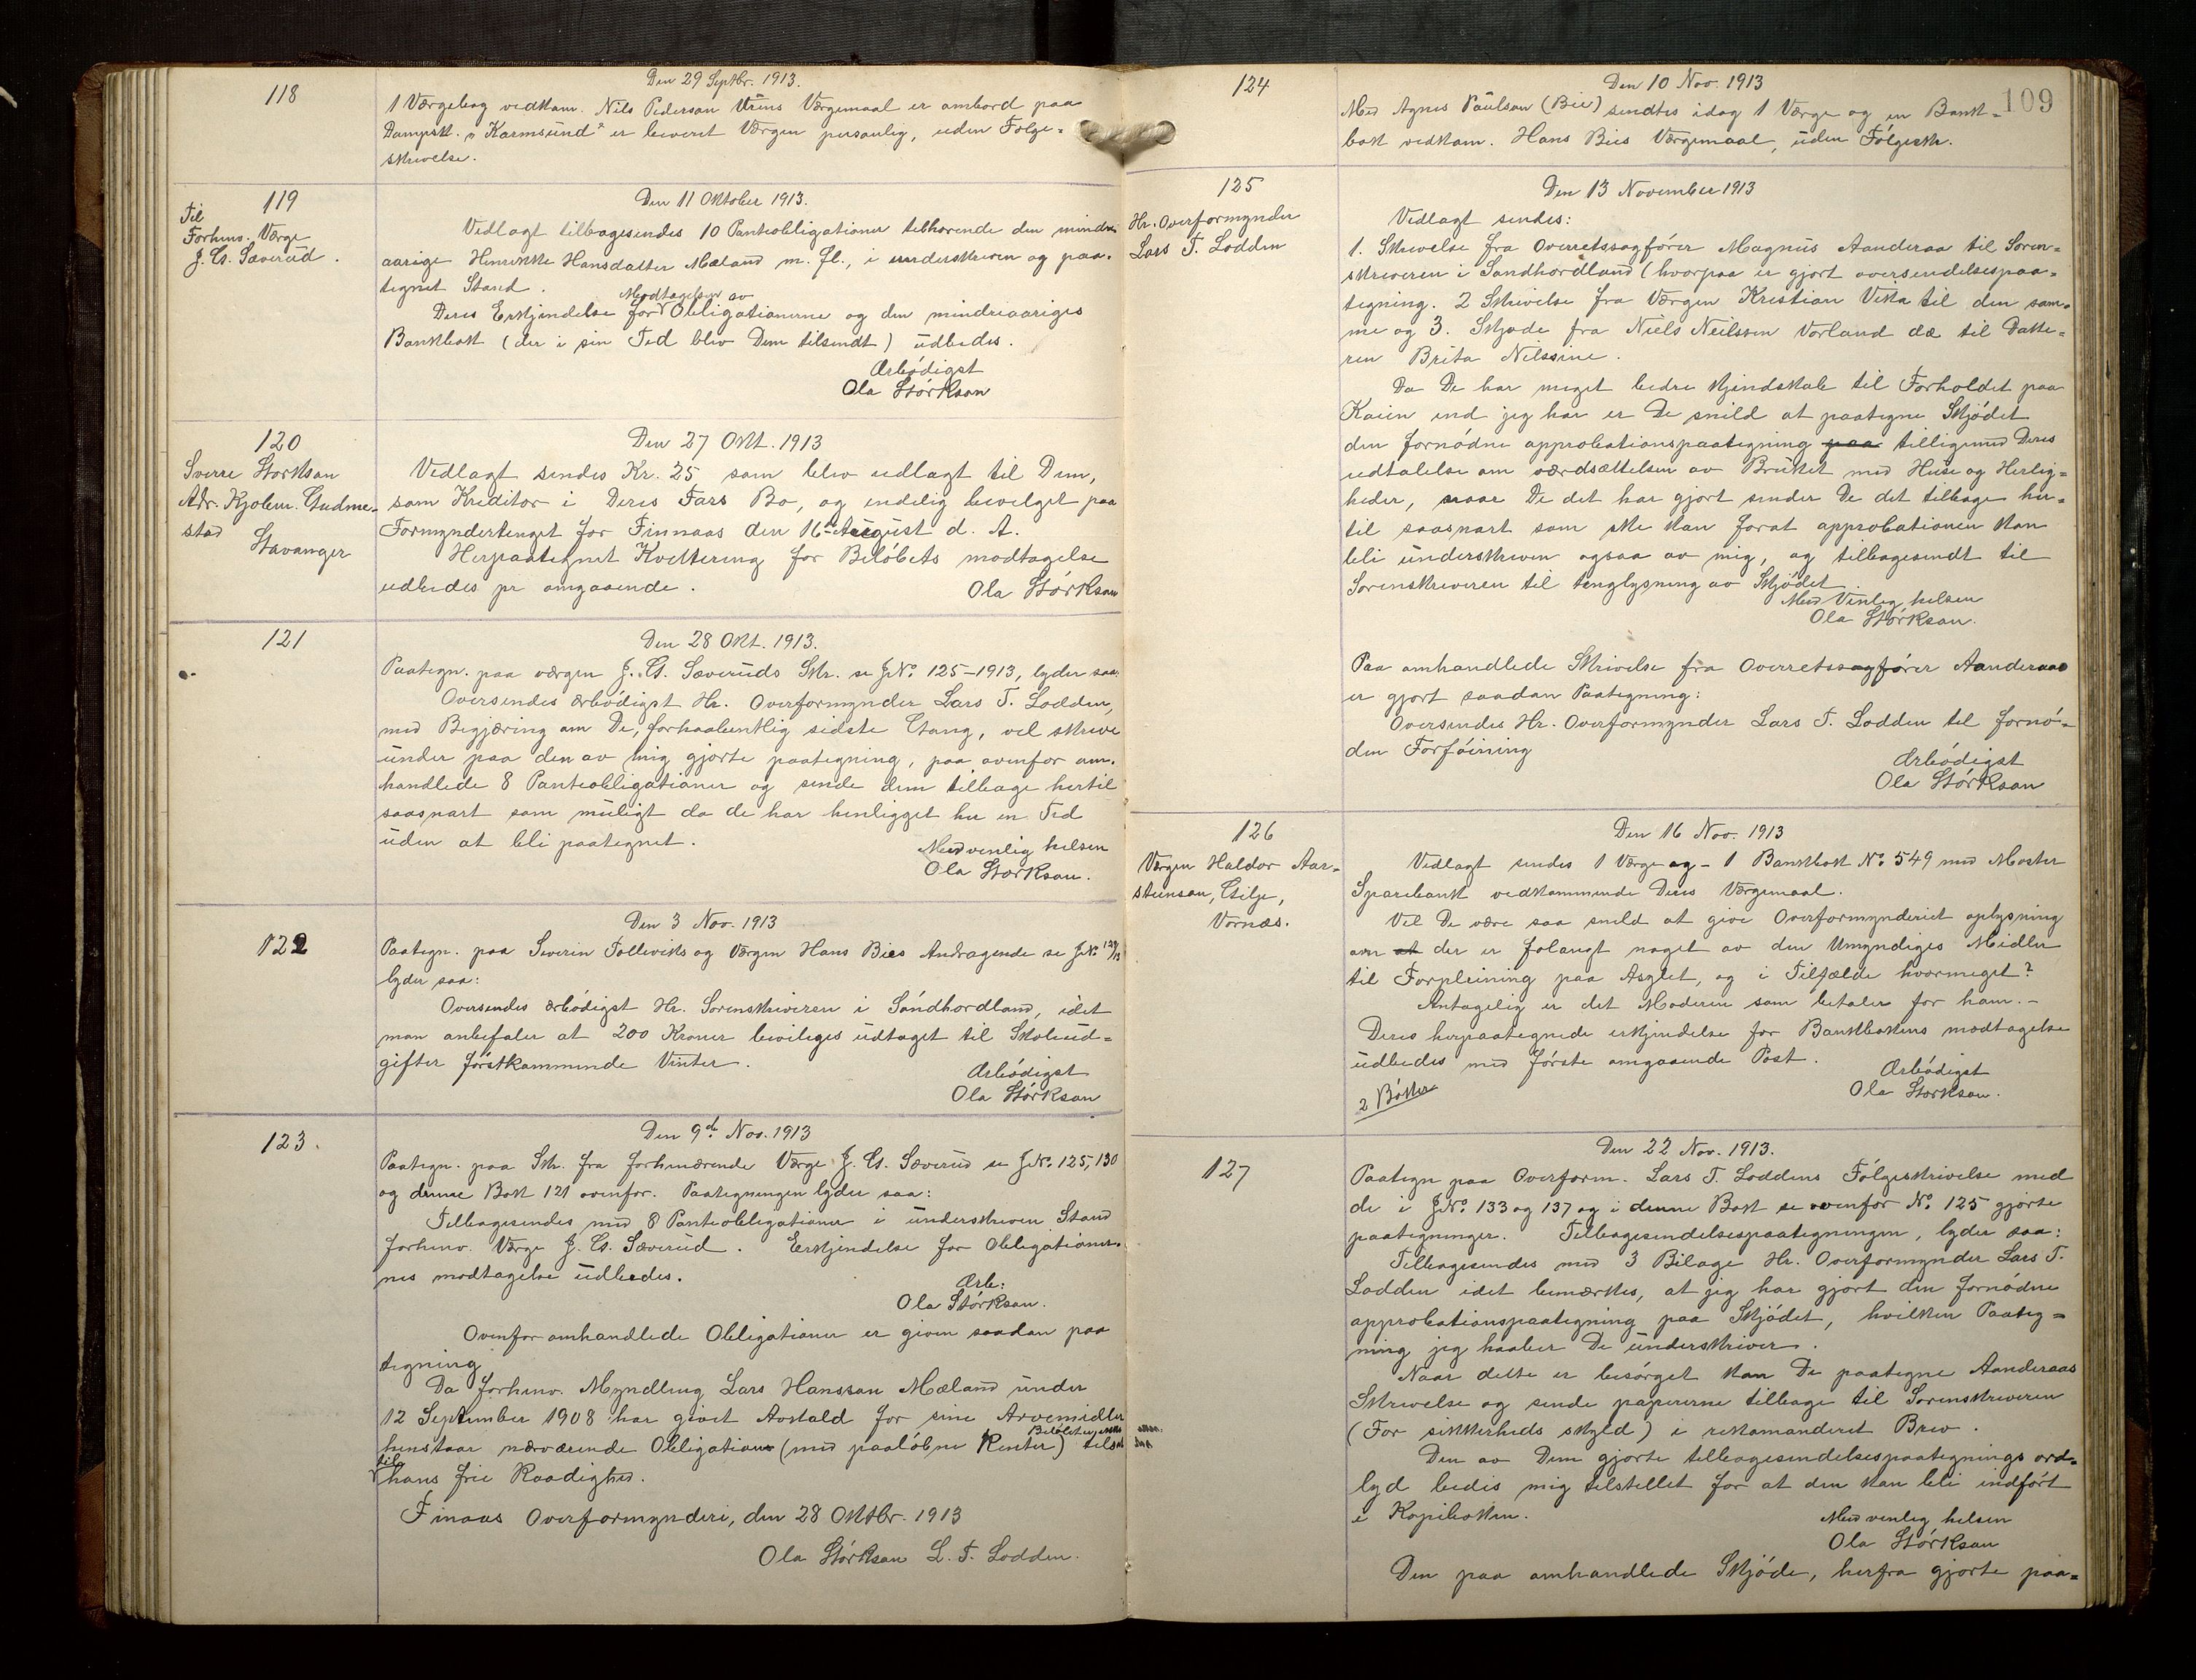 118
Den 29 Septbr. 1913.
1 Værgebog vedkom. Nils Pederson Urens Værgemaal er ombord paa
Dampsk. "Karmsund" er leveret Værgen personlig, uden Følge=
skrivelse.
119
Til
Forhenv. Værge
J. G. Sæverud.
Den 11 Oktober 1913.
Vedlagt tilbagesendes 10 Panteobligationer tilhørende den mindre
aarige Henrikke Hansdatter Mæland m. fl., i underskreven og paa=
tegnet Stand.
Deres Erkjendelse for Modtagelsen av Obligationerne og den mindreaariges
Bankbok (der i sin Tid blev Dem tilsendt) udbedes.
Ærbödigst
Ola Störkson
120
Sverre Storkson
Adr. Kjøbm. Gudme=
stad
Stavanger
Den 27 Okt. 1913
Vedlagt sendes Kr. 25 som blev udlagt til Dem,
som Kreditor i Deres Fars Bo, og endelig bevilget paa
Formyndertinget for Finnaas den 16de August d. A.
Herpaategnet Kvittering for Beløbets modtagelse
udbedes pr omgaaende.
Ola Störkson
121
Den 28 Okt. 1913.
Paategn. paa værgen J. G. Sæveruds Skr. se J.No. 125-1913, lyder saa:
Oversendes ærbödigst Hr. Overformynder Lars T. Lodden,
med Begjæring om De, forhaabentlig sidste Gang, vil skrive
under paa den av mig gjorte paategning, paa ovenfor om=
handlede 8 Panteobligationer og sende dem tilbage hertil
saasnart som muligt da de har henligget her en Tid
uden at bli paategnet.
Med venlig hilsen
Ola Storkson.
122
Den 3 Nov. 1913
Paategn. paa Severin Folleviks og Værgen Hans Bies Andragende se J.No.
lyder saa:
Oversendes ærbödigst Hr. Sorenskriveren i Söndhordland, idet
man anbefaler at 200 Kroner bevilges udtaget til Skoleud=
gifter förstkommende Vinter.
Ærbödigst
Ola Störkson
123.
Den 9de Nov. 1913
Paategn. paa Skr. fra forhenværende Værge J. G. Sæverud se J.No. 125, 130
og denne Bok 121 ovenfor. Paategningen lyder saa:
Tilbagesendes med 8 Panteobligationer i underskreven Stand
forhenv. Værge J. G. Sæverud. Erkjendelse for Obligationer=
nes modtagelse udbedes.
Ærb:
Ola Störkson.
Ovenfor omhandlede Obligationer er given saadan paa
tegning
Da forhenv. Myndling Lars Hansson Mæland under
12 September 1908 har givet Avkald for sine Arvemidler
henstaar nærværende Obligation (med paalöbne Renter)
til hans frie Raadighed.
Finaas Overformynderi, den 28 Oktbr. 1913
Ola Störkson L. T. Lodden.
109
124
Den 10 Nov. 1913
Med Agnes Paulson (Bie) sendtes idag 1 Værge og en Bank=
bok vedkom. Hans Bies Værgemaal, uden Fölgeskr.
125
Hr. Overformynder
Lars T. Lodden
Den 13 November 1913
Vedlagt sendes:
1. Skrivelse fra Overretssagfører Magnus Aanderaa til Soren=
skriveren i Sandhordland (hvorpaa er gjort oversendelsespaa=
tegning. 2 Skrivelse fra Værgen Kristian Vika til den sam=
me og 3. Skjøde fra Niels Neilssen Vorland dæ til Datte=
ren Brita Nilssine.
Da De har meget bedre kjendskab til Forholdet paa
Kaien end jeg har er De snild at paategne Skjödet
den fornödne approbationspaategning paa tilligemed Deres
udtalelse om værdsættelsen av Bruket med Huse og Herlig=
heder, naar De det har gjort sender De det tilbage her=
til saasnart som ske kan forat approbationen kan
bli underskreven ogsaa av mig, og tilbagesendt til
Sorenskriveren til tinglysning av Skjödet.
Med Venlig hilsen
Ola Störkson.
Paa omhandlede Skrivelse fra Overretssagförer Aanderaa
er gjort saadan Paategning:
Oversendes Hr. Overformynder Lars T. Lodden til fornö=
den Forföining
Ærbödigst
Ola Störkson
126
Værgen Haldor Aar=
steinson, Gilje,
Vornæs.
Den 16 Nov. 1913
Vedlagt sendes 1 Værge og - 1 Bankbok No. 549 med Moster
Sparebank vedkommende Deres Værgemaal.
Vil De være saa snild at give Overformynderiet oplysning
om at der er forlangt noget av den Umyndiges Midler
til Forpleining paa Asylet, og i Tilfælde hvormeget?
Antagelig er det Moderen som betaler for ham.-
Deres herpaategnede erkjendelse for Bankbokens modtagelse
udbedes med förste omgaaende Post.
Ærbödigst
Ola Storkson.
2 Böker
127
Den 22 Nov. 1913.
Paategn paa Overform. Lars T. Loddens Fölgeskrivelse med
de i J.No. 133 og 137 og i denne Bok se ovenfor No. 125 gjorte
paategninger. Tilbagesendelsespaategningen, lyder saa:
Tilbagesendes med 3 Bilage Hr. Overformynder Lars T.
Lodden idet bemærkes, at jeg har gjort den fornödne
approbationspaategning paa Skjödet, hvilken Paateg=
ning jeg haaber De underskriver.
Naar dette er besörget kan De paategne Aanderaas
Skrivelse og sende papirerne tilbage til Sorenskriveren
(For sikkerheds skyld) i rekomanderet Brev.
Den av Dem gjorte tilbagesendelsespaategnings ord=
lyd bedes mig tilstillet for at den kan bli indfört
i Kopiboken.
Med venlig hilsen
Ola Störkson
Den paa omhandlede Skjöde, herfra gjorte paa=